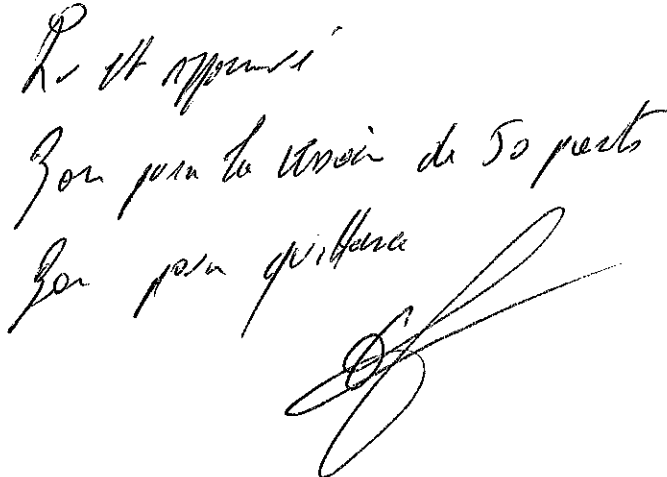 Lu et approuvé
Bon pour la cession de 50 parts
Bon pour quittance